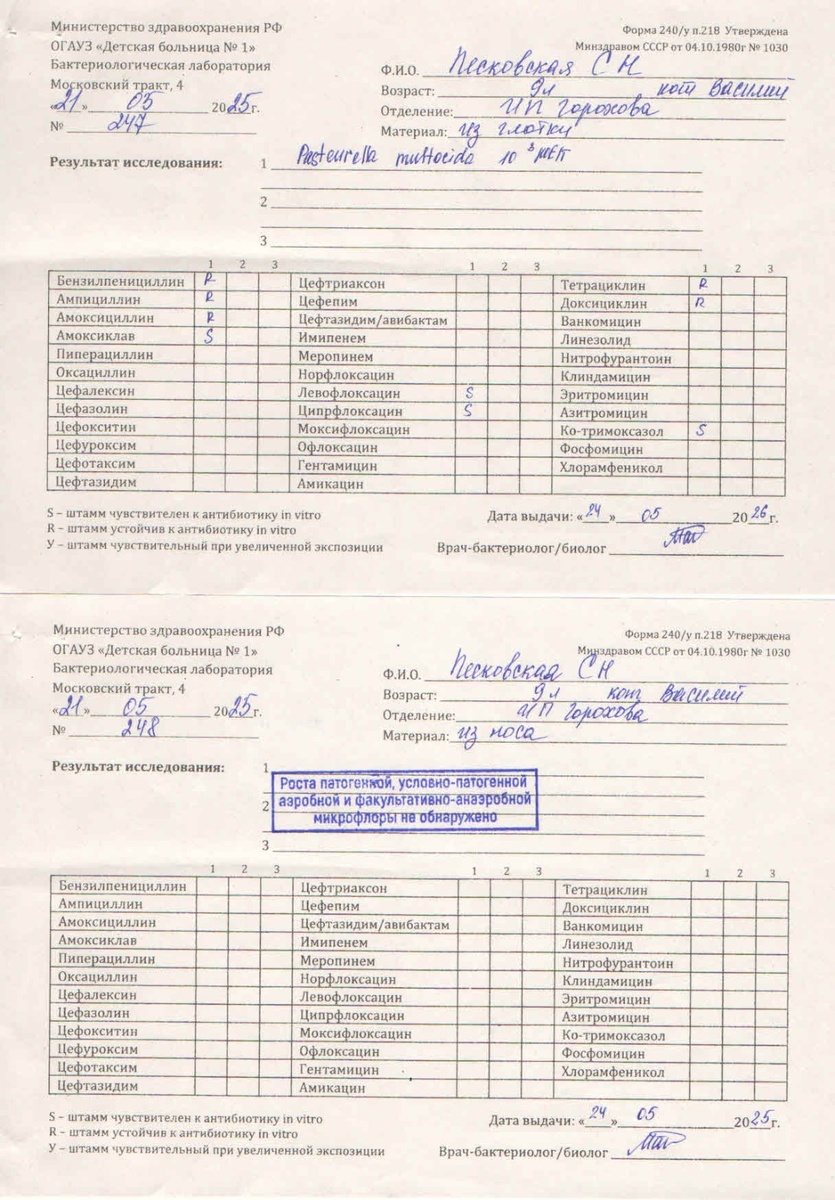 Министерство здравоохранения РФ
ОГАУЗ «Детская больница № 1»
Бактериологическая лаборатория
Московский тракт, 4
«21» 05 2025г.
№ 247
Форма 240/у п.218 Утверждена
Минздравом СССР от 04.10.1980г № 1030
Ф.И.О. Песковская С Н
Возраст: 9л кот Василий
Отделение: ИП Горохова
Материал: из глотки
Результат исследования: 1 Pasteurella multocida 10 3
2
3
1 2 3 1 2 3 1 2 3
Бензилпенициллин R Цефтриаксон Тетрациклин R
Ампициллин R Цефепим Доксициклин R
Амоксициллин R Цефтазидим/авибактам Ванкомицин
Амоксиклав S Имипенем Линезолид
Пиперациллин Меропинем Нитрофурантоин
Оксациллин Норфлоксацин Клиндамицин
Цефалексин Левофлоксацин S Эритромицин
Цефазолин Ципрфлоксацин S Азитромицин
Цефокситин Моксифлоксацин Ко-тримоксазол S
Цефуроксим Офлоксацин Фосфомицин
Цефотаксим Гентамицин Хлорамфеникол
Цефтазидим Амикацин
S – штамм чувствителен к антибиотику in vitro
R – штамм устойчив к антибиотику in vitro
У – штамм чувствительный при увеличенной экспозиции
Дата выдачи: «24» 05 2026г.
Врач-бактериолог/биолог
Министерство здравоохранения РФ
ОГАУЗ «Детская больница № 1»
Бактериологическая лаборатория
Московский тракт, 4
«21» 05 2025г.
№ 248
Форма 240/у п.218 Утверждена
Минздравом СССР от 04.10.1980г № 1030
Ф.И.О. Песковская С Н
Возраст: 9л кот Василий
Отделение: ИП Горохова
Материал: из носа
Результат исследования: 1
Роста патогенной, условно-патогенной
2 аэробной и факультативно-анаэробной
микрофлоры не обнаружено
3
1 2 3 1 2 3 1 2 3
Бензилпенициллин Цефтриаксон Тетрациклин
Ампициллин Цефепим Доксициклин
Амоксициллин Цефтазидим/авибактам Ванкомицин
Амоксиклав Имипенем Линезолид
Пиперациллин Меропинем Нитрофурантоин
Оксациллин Норфлоксацин Клиндамицин
Цефалексин Левофлоксацин Эритромицин
Цефазолин Ципрфлоксацин Азитромицин
Цефокситин Моксифлоксацин Ко-тримоксазол
Цефуроксим Офлоксацин Фосфомицин
Цефотаксим Гентамицин Хлорамфеникол
Цефтазидим Амикацин
S – штамм чувствителен к антибиотику in vitro
R – штамм устойчив к антибиотику in vitro
У – штамм чувствительный при увеличенной экспозиции
Дата выдачи: «24» 05 2025г.
Врач-бактериолог/биолог